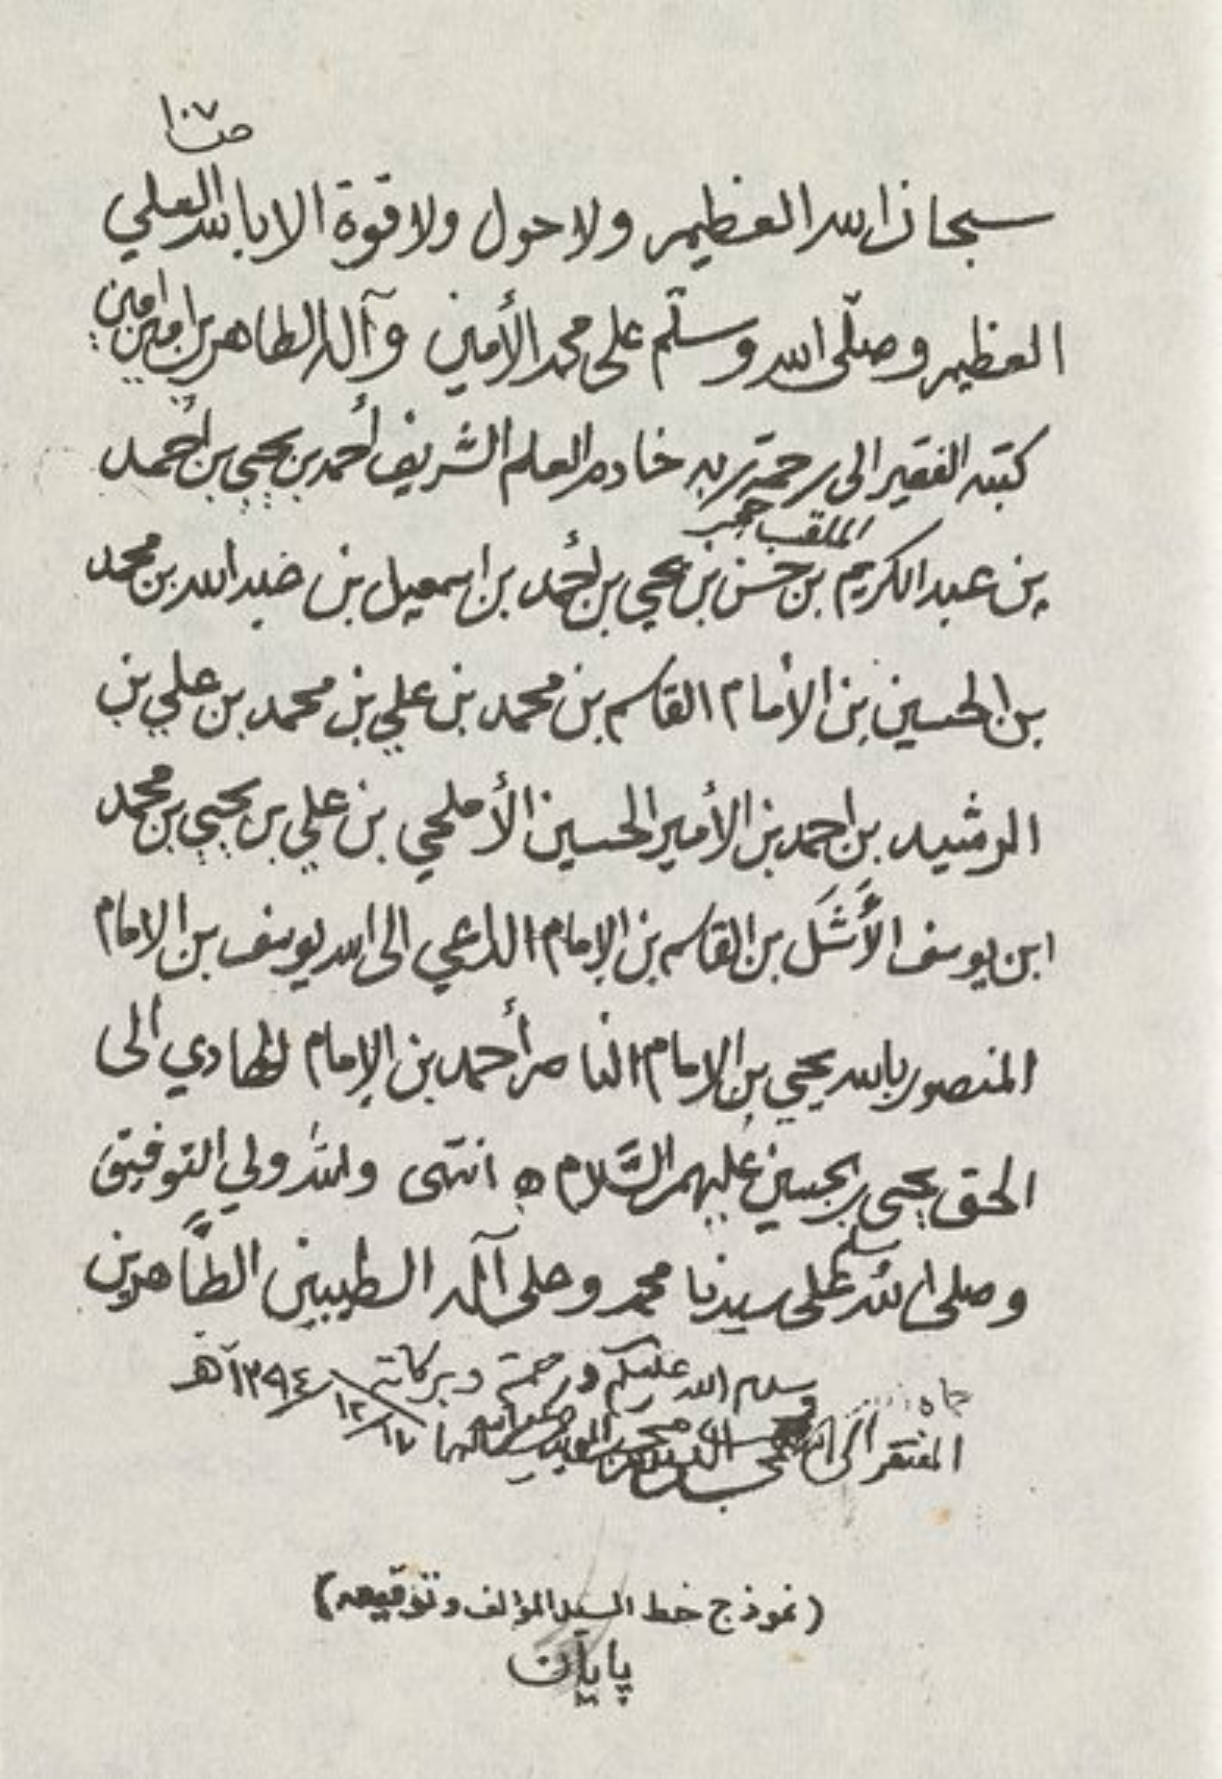 ص ١٠٧
سبحان الله العظيم ولا حول ولا قوة الا بالله العلي
العظيم وصلّى الله وسلّم على محمد الأمين وآله الطاهرين امين امين
كتبه الفقير الى رحمة ربه خادم العلم الشريف أحمد بن يحيى بن أحمد
الملقب حجر
بن عبد الكريم بن حسن بن يحيى بن أحمد بن اسمعيل بن عبد الله بن محمد
بن الحسين بن الأمام القاسم بن محمد بن علي بن محمد بن علي بن
الرشيد بن احمد بن الأمير الحسين الأملحي بن علي بن يحيى بن محمد
ابن يوسف الأَشَل بن القاسم بن الإمام الداعي الى الله يوسف بن الامام
المنصور بالله يحيى بن الامام الناصر أحمد بن الإمام الهادي الى
الحق يحيى بن الحسين عليهم السَّلام ه انتهى والله ولي التوفيق
وصلى الله وسلم على سيدنا محمد وعلى آله الطيبين الطَّاهرين
وسلام الله عليكم ورحمة وبركاته ١٧/١٢/١٣٩٤هـ
المفتقر الى الله
(نموذج خط السيد المؤلف وتوقيعه)
پایان